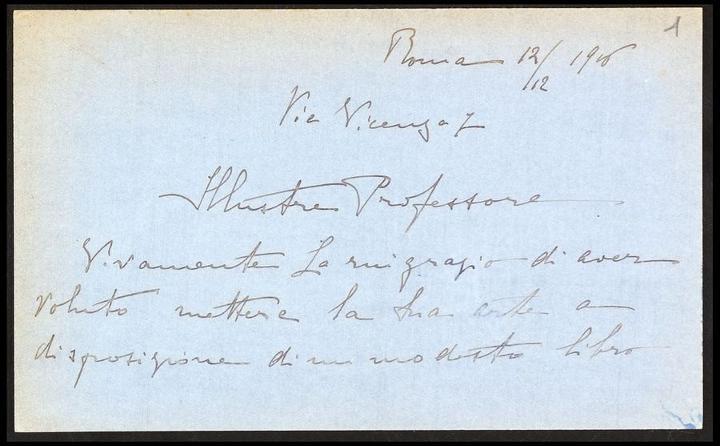 1
Roma 12/12 1916
Via Vicenza 7
Illustre Professore
Vivamente La ringrazio di aver
voluto mettere la sua arte a
disposizione di un modesto libro